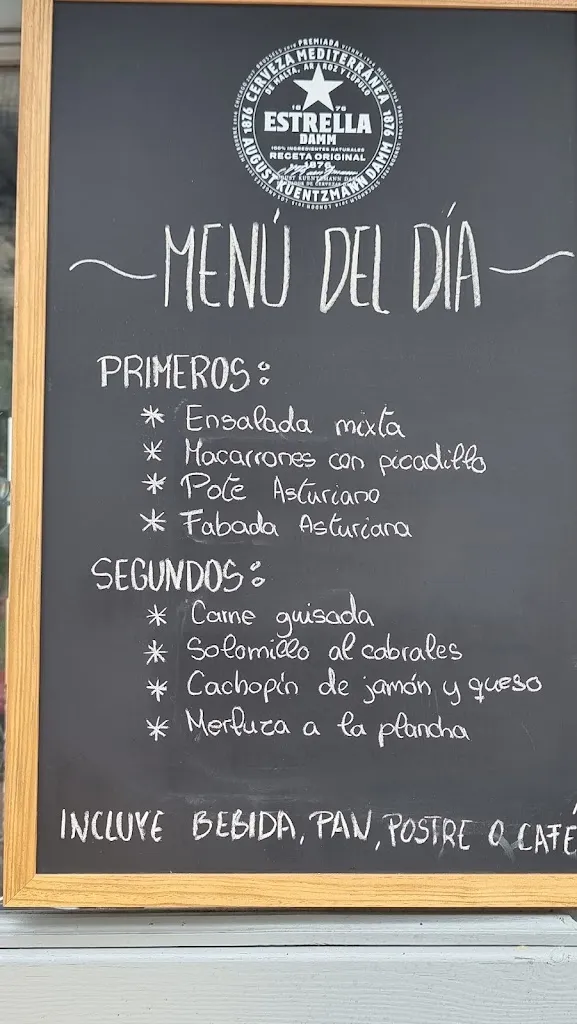 PREMIADA
CERVEZA MEDITERRÁNEA
DE MALTA, ARROZ Y LÚPULO
1876
1876
1876
ESTRELLA
DAMM
100% INGREDIENTES NATURALES
RECETA ORIGINAL
1876
AUGUST KUENTZMANN DAMM
MENÚ DEL DÍA
PRIMEROS:
* Ensalada mixta
* Macarrones con picadillo
* Pote Asturiano
* Fabada Asturiana
SEGUNDOS:
* Carne guisada
* Solomillo al cabrales
* Cachopín de jamón y queso
* Merluza a la plancha
INCLUYE BEBIDA, PAN, POSTRE O CAFÉ